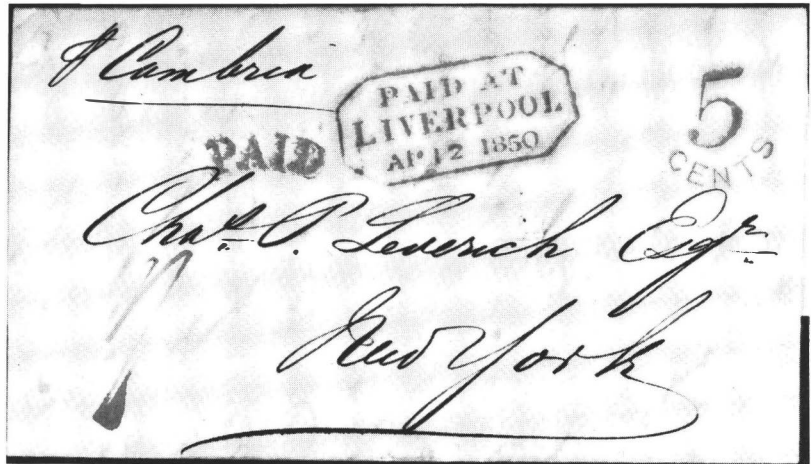 ⅌ Cambria
PAID AT
LIVERPOOL
AP 12 1850
PAID
5
CENTS
Chas. P. Leverich Esqr.
New York